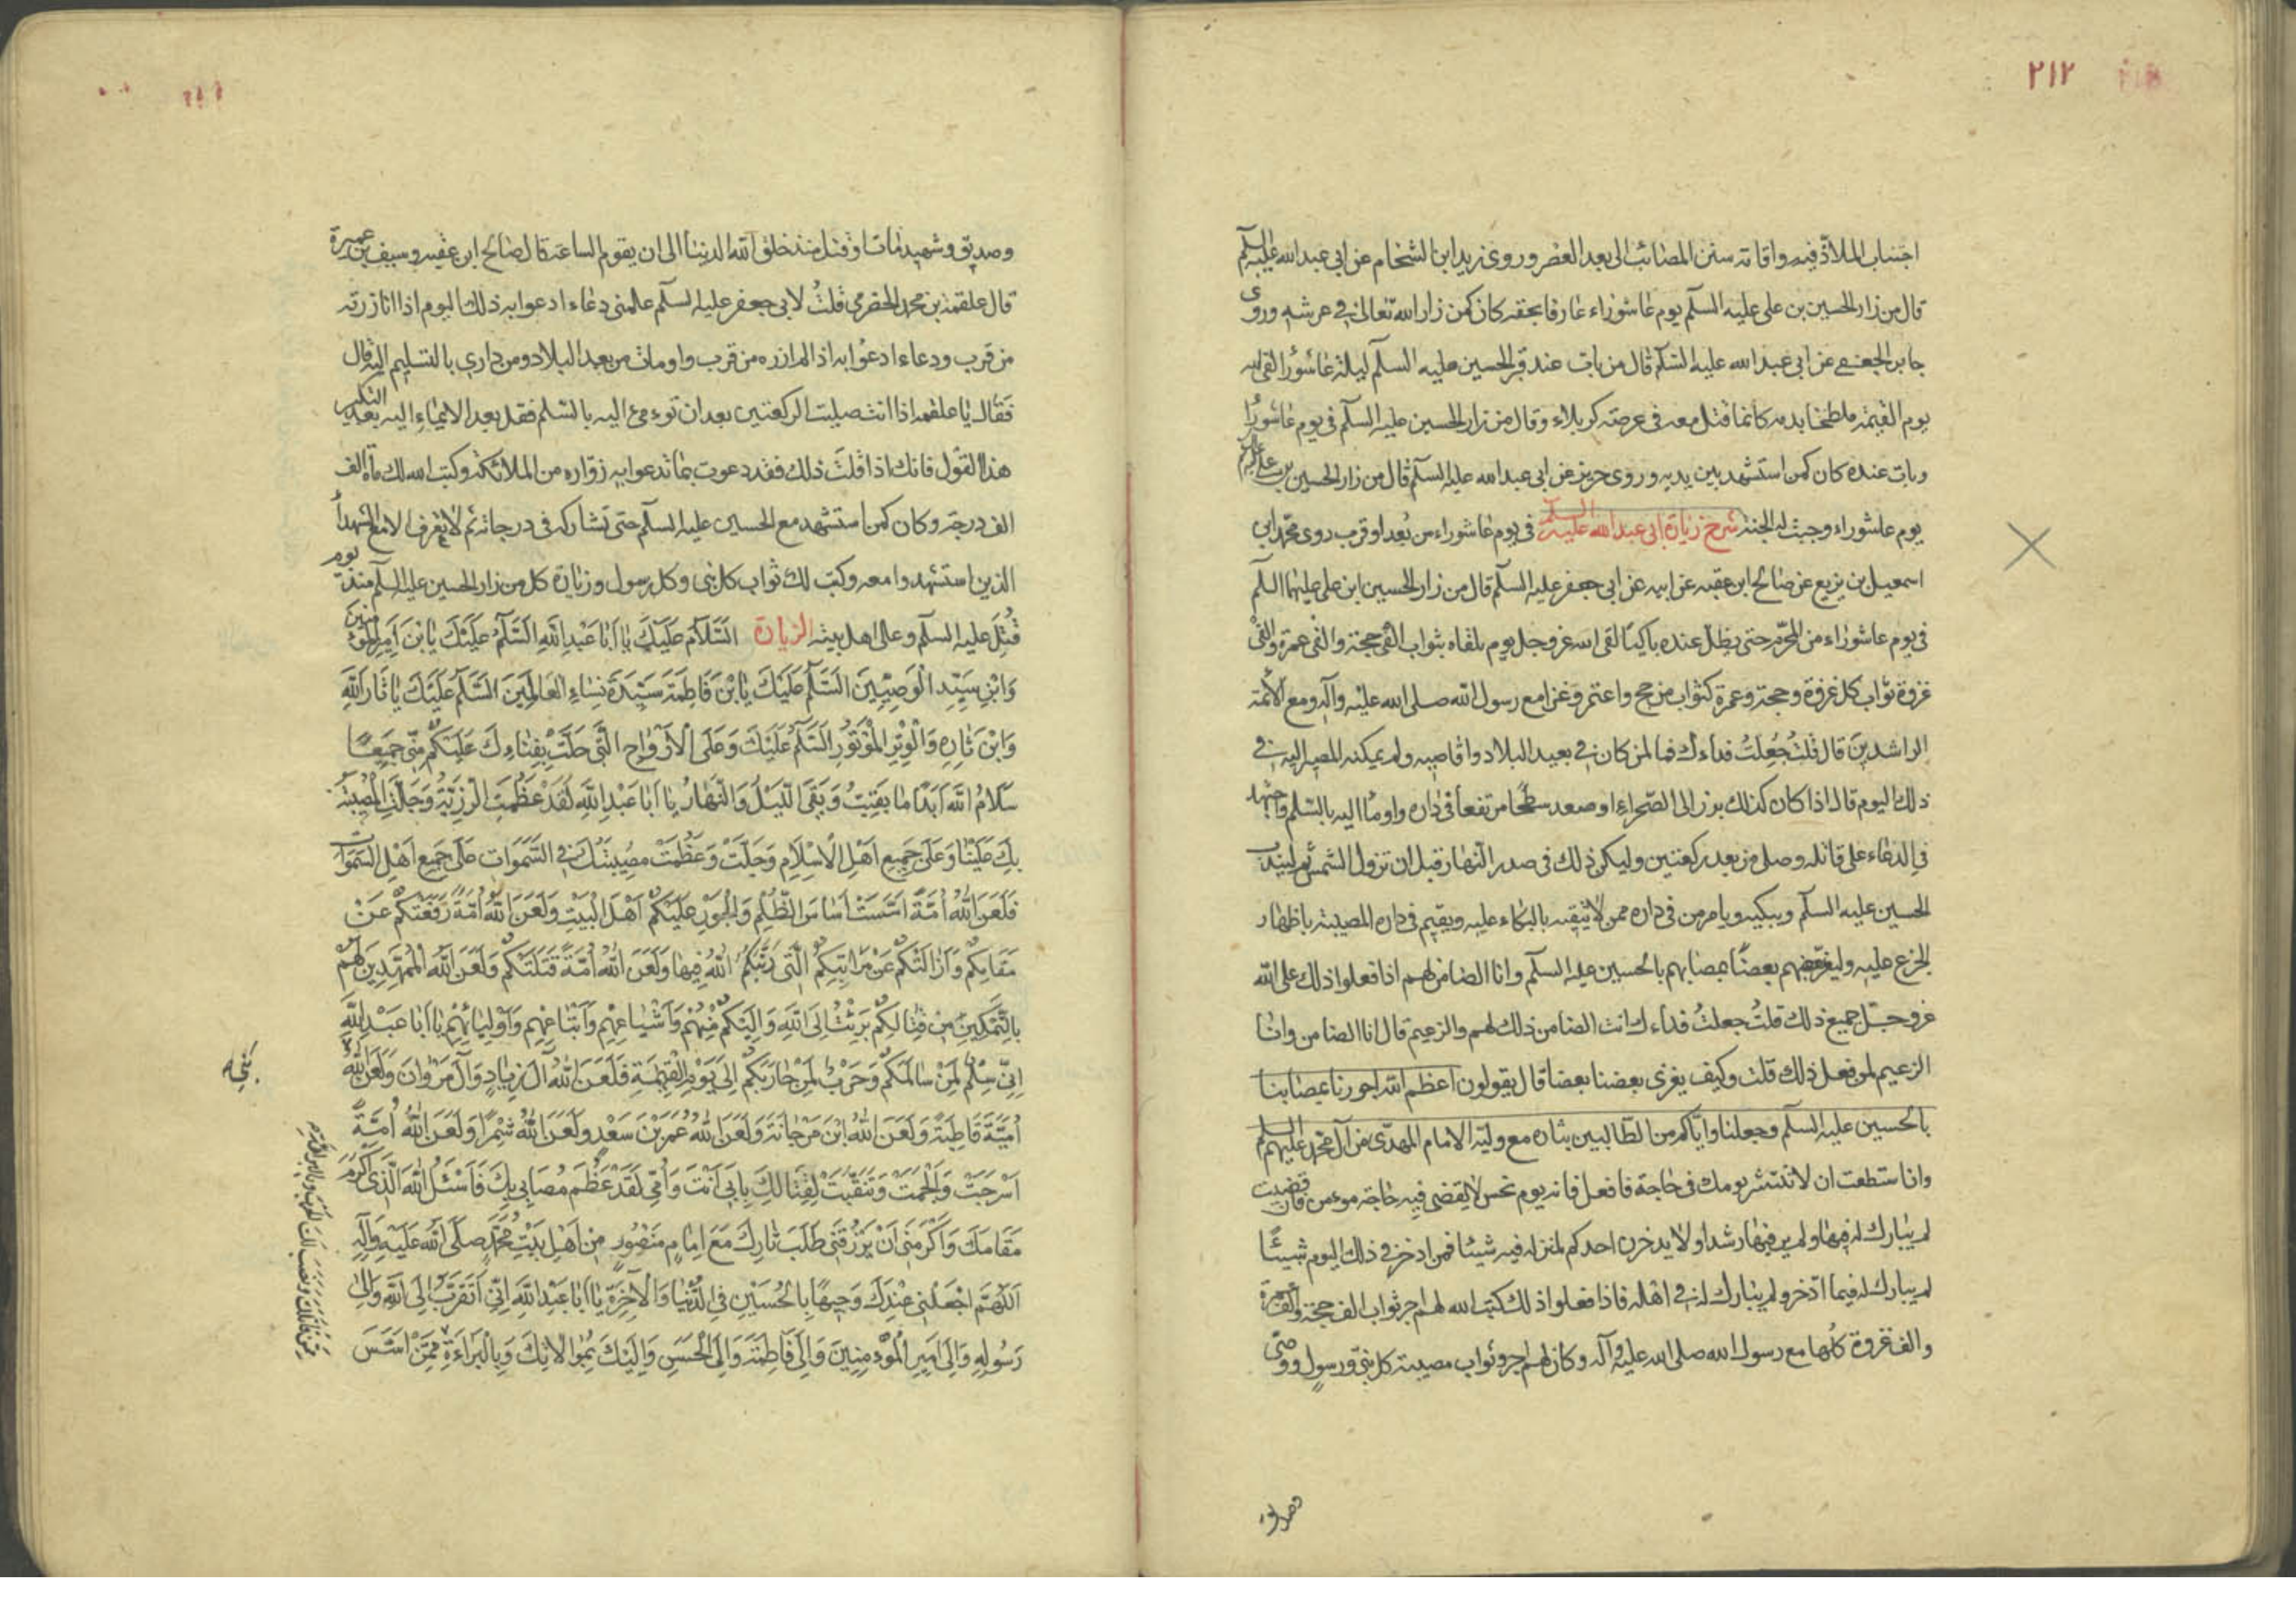 ٢١٢
اجتناب الملاذ فيه واقامة سنن المصائب الى بعد العصر وروى زيد ابن الشحام عن ابى عبد الله عليه السلم
قال من زار الحسين بن على عليه السلم يوم عاشوراء عارفا بحقه كان كمن زار الله تعالى فى عرشه وروى
جابر الجعفى عن ابى عبد الله عليه السلم قال من بات عند قبر الحسين عليه السلم ليلة عاشورا لقى الله
يوم القيمة ملطخا بدمه كانما قتل معه فى عرصة كربلاء وقال من زار الحسين عليه السلم فى يوم عاشورا
وبات عنده كان كمن استشهد بين يديه وروى حريز عن ابى عبد الله عليه السلم قال من زار الحسين بن على عليه السلم
يوم عاشوراء وجبت له الجنة شرح زيارة ابى عبد الله عليه السلم فى يوم عاشوراء من بعد او قرب روى محمد ابن
اسمعيل بن بزيع عن صالح ابن عقبه عن ابيه عن ابى جعفر عليه السلم قال من زار الحسين ابن على عليهما السلم
فى يوم عاشوراء من المحرم حتى يظل عنده باكيا لقى الله عز وجل يوم يلقاه بثواب الفى حجة والفى عمرة والفى
غزوة ثواب كل غزوة وحجة وعمرة كثواب من حج واعتمر وغزا مع رسول الله صلى الله عليه وآله ومع الائمة
الراشدين قال قلت جعلت فداءك فما لمن كان فى بعيد البلاد واقاصيه ولم يمكنه المصير اليه فى
ذلك اليوم قال اذا كان كذلك برز الى الصحراء او صعد سطحا مرتفعا فى داره واومأ اليه بالسلم واجتهد
فى الدعاء على قاتله وصلى من بعد ركعتين وليكن ذلك فى صدر النهار قبل ان تزول الشمس ثم ليندب
الحسين عليه السلم ويبكيه ويامر من فى داره ممن لا يتقيه بالبكاء عليه ويقيم فى داره المصيبة باظهار
الجزع عليه وليعز بعضهم بعضا بمصابهم بالحسين عليه السلم وانا الضامن لهم اذا فعلوا ذلك على الله
عز وجل جميع ذلك قلت جعلت فداءك انت الضامن ذلك لهم والزعيم قال انا الضامن وانا
الزعيم لمن فعل ذلك قلت وكيف يعزى بعضنا بعضا قال يقولون اعظم الله اجورنا بمصابنا
بالحسين عليه السلم وجعلنا واياكم من الطالبين بثاره مع وليه الامام المهدى من آل محمد عليهم السلم
وان استطعت ان لا تنتشر يومك فى حاجة فافعل فانه يوم نحس لا يقضى فيه حاجة مومن فان قضيت
لم يبارك له فيها ولم ير فيها رشدا ولا يدخرن احدكم لمنزله فيه شيئا فمن ادخر فى ذلك اليوم شيئا
لم يبارك له فيما ادخر ولم يبارك له فى اهله فاذا فعلوا ذلك كتب الله لهم اجر ثواب الف حجة والف عمرة
والف غزوة كلها مع رسول الله صلى الله عليه وآله وكان لهم اجر وثواب مصيبة كل نبى ورسول ووصى
وصديق
وصديق وشهيد مات او قتل منذ خلق الله الدنيا الى ان يقوم الساعة قال صالح ابن عقبه وسيف بن عميرة
قال علقمة بن محمد الحضرمى قلت لابى جعفر عليه السلم علمنى دعاء ادعو به ذلك اليوم اذا انا زرته
من قرب ودعاء ادعو به اذا لم ازره من قرب واومات من بعد البلاد ومن دارى بالتسليم اليه قال
فقال يا علقمه اذا انت صليت الركعتين بعد ان تومئ اليه بالسلم فقل بعد الايماء اليه بعد التكبير
هذا القول فانك اذا قلت ذلك فقد دعوت بما تدعو به زواره من الملائكة وكتب الله لك مأة الف
الف درجة وكان كمن استشهد مع الحسين عليه السلم حتى تشاركه فى درجاتهم لا يعرف الا مع الشهدآ
الذين استشهدوا معه وكتب لك ثواب كل نبى وكل رسول وزيارة كل من زار الحسين عليه السلم منذ يوم
قتل عليه السلم وعلى اهل بيته الزيارة السَّلَامُ عَلَيْكَ يا اَبا عَبْدِ اللهِ السَّلَمُ عَلَيْكَ يابْنَ اَمِيرِ المؤمنين
وَابْنِ سَيِّدِ الْوَصِيِّينَ السَّلَمُ عَلَيْكَ يابْنَ فاطِمَةَ سَيِّدَةِ نِساءِ العالَمِينَ السَّلَمُ عَلَيْكَ يا ثارَ اللهِ
وَابْنَ ثارِهِ وَالْوِتْرَ الْمَوْتُورَ السَّلَمُ عَلَيْكَ وَعَلَى الْاَرْواحِ الَّتِى حَلَّتْ بِفِناءِكَ عَلَيْكُمْ مِنِّى جَمِيعًا
سَلامُ اللهِ اَبَدًا ما بَقِيتُ وَبَقِىَ اللَّيْلُ وَالنَّهارُ يا اَبا عَبْدِ اللهِ لَقَدْ عَظُمَتِ الرَّزِيَّةُ وَجَلَّتِ الْمُصِيبَةُ
بِكَ عَلَيْنا وَعَلى جَمِيعِ اَهْلِ الْاِسْلامِ وَجَلَّتْ وَعَظُمَتْ مُصِيبَتُكَ فِى السَّمَواتِ عَلى جَمِيعِ اَهْلِ السَّمَواتِ
فَلَعَنَ اللهُ اُمَّةً اَسَّسَتْ اَساسَ الظُّلْمِ وَالْجَوْرِ عَلَيْكُمْ اَهْلَ الْبَيْتِ وَلَعَنَ اللهُ اُمَّةً دَفَعَتْكُمْ عَنْ
مَقامِكُمْ وَاَزالَتْكُمْ عَنْ مَراتِبِكُمُ الَّتِى رَتَّبَكُمُ اللهُ فِيها وَلَعَنَ اللهُ اُمَّةً قَتَلَتْكُمْ وَلَعَنَ اللهُ الْمُمَهِّدِينَ لَهُمْ
بِالتَّمْكِينِ مِنْ قِتالِكُمْ بَرِئْتُ اِلَى اللهِ وَاِلَيْكُمْ مِنْهُمْ وَاَشْياعِهِمْ وَاَتْباعِهِمْ وَاَوْلِيائِهِمْ يا اَبا عَبْدِ اللهِ
اِنِّى سِلْمٌ لِمَنْ سالَمَكُمْ وَحَرْبٌ لِمَنْ حارَبَكُمْ اِلى يَوْمِ الْقِيمَةِ فَلَعَنَ اللهُ آلَ زِيادٍ وَآلَ مَرْوانَ وَلَعَنَ اللهُ
بَنِى
اُمَيَّةَ قاطِبَةً وَلَعَنَ اللهُ ابْنَ مَرْجانَةَ وَلَعَنَ اللهُ عُمَرَ بْنَ سَعْدٍ وَلَعَنَ اللهُ شِمْرًا وَلَعَنَ اللهُ اُمَّةً
اَسْرَجَتْ وَاَلْجَمَتْ وَتَنَقَّبَتْ لِقِتالِكَ بِاَبِى اَنْتَ وَاُمِّى لَقَدْ عَظُمَ مُصابِى بِكَ فَاَسْئَلُ اللهَ الَّذِى اَكْرَمَ
مَقامَكَ وَاَكْرَمَنِى اَنْ يَرْزُقَنِى طَلَبَ ثارِكَ مَعَ اِمامٍ مَنْصُورٍ مِنْ اَهْلِ بَيْتِ مُحَمَّدٍ صَلَّى اللهُ عَلَيْهِ وَآلِهِ
اَللّهُمَّ اجْعَلْنِى عِنْدَكَ وَجِيهًا بِالْحُسَيْنِ فِى الدُّنْيا وَالْاخِرَةِ يا اَبا عَبْدِ اللهِ اِنِّى اَتَقَرَّبُ اِلَى اللهِ وَاِلى
رَسُولِهِ وَاِلى اَمِيرِ الْمُؤْمِنِينَ وَاِلى فاطِمَةَ وَاِلَى الْحَسَنِ وَاِلَيْكَ بِمُوالاتِكَ وَبِالْبَراءَةِ مِمَّنْ اَسَّسَ
مِمَّنْ قاتَلَكَ وَنَصَبَ لَكَ الْحَرْبَ وَبِالْبَراءَةِ